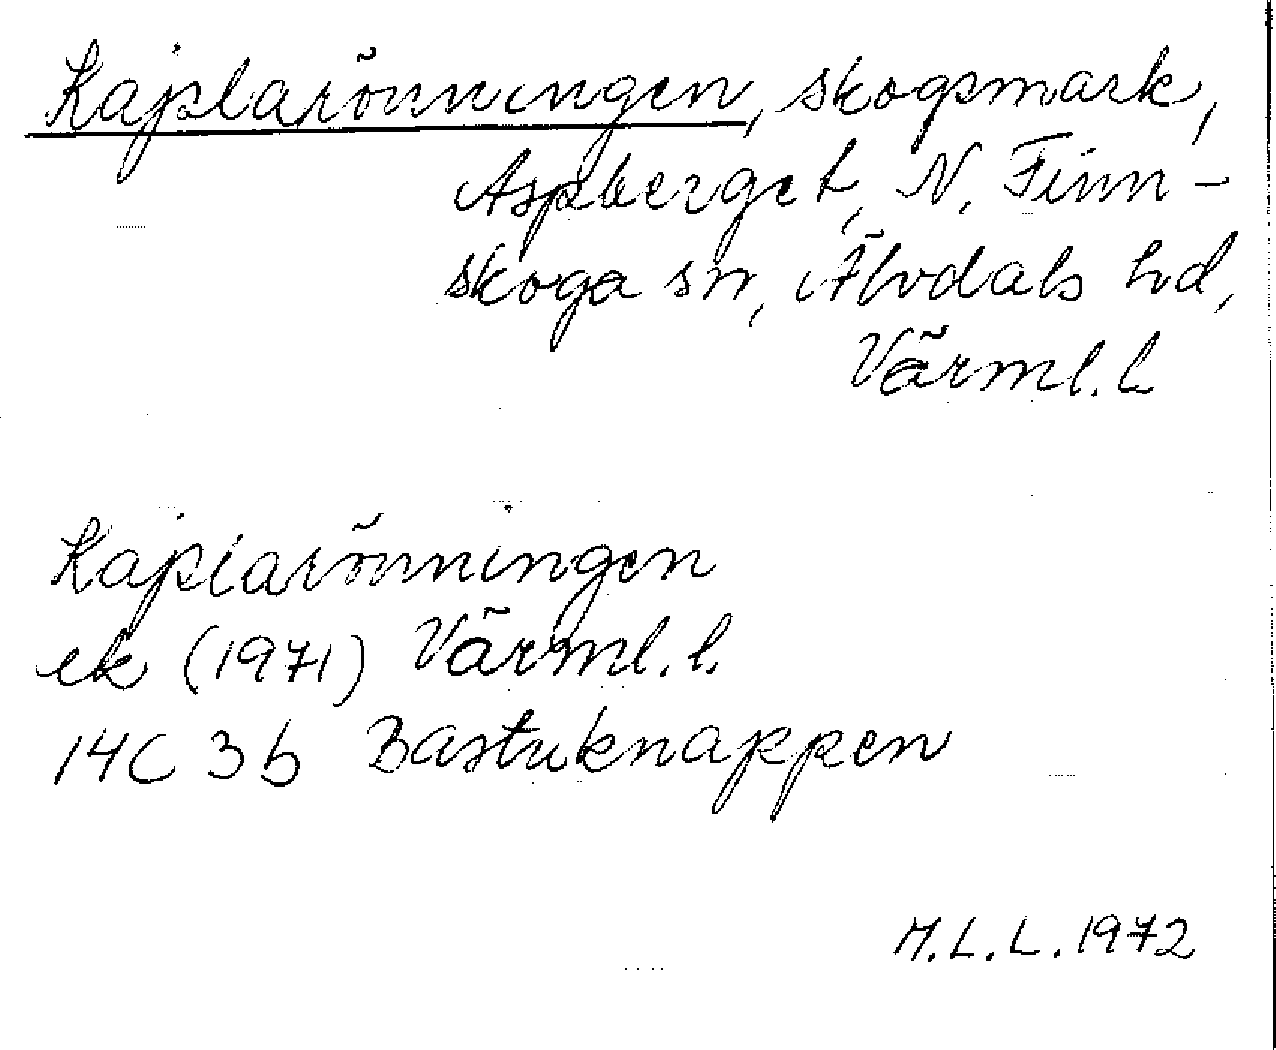 Kajslarönningen, skogsmark,
Aspberget, N. Finn-
skoga sn, Älvdals hd,
Värml. l.
Kajslarönningen
ek (1971) Värml. l.
14C 3b Bastuknappen
M.L.L. 1972